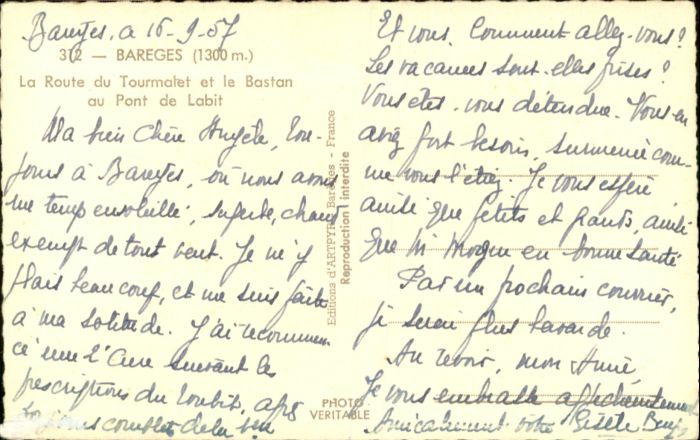 Barèges, a 16-9-57
312 — BAREGES (1300 m.)
La Route du Tourmalet et le Bastan
au Pont de Labit
Ma bien chère Angèle, tou-
jours à Barèges, où nous avons
un temps ensoleillé, superbe, chaud
exempt de tout vent. Je m'y
plais beaucoup, et me suis faite
à ma solitude. J'ai recommen
cé une Cure suivant les
prescriptions du
Editions d'ARTPYR Barèges - France
Reproduction interdite
PHOTO
VERITABLE
Et vous, Comment allez-vous?
Les vacances sont-elles finies?
Vous êtes-vous détendue. Vous en
aviez fort besoin, surmenée com-
me vous l'étiez. Je vous espère
ainsi que petits et grands, ainsi
que en bonne santé
Par un prochain courrier,
je serai plus bavarde.
Au revoir, mon Amie,
Je vous embrasse affectueusement
Amicalement votre Gisèle